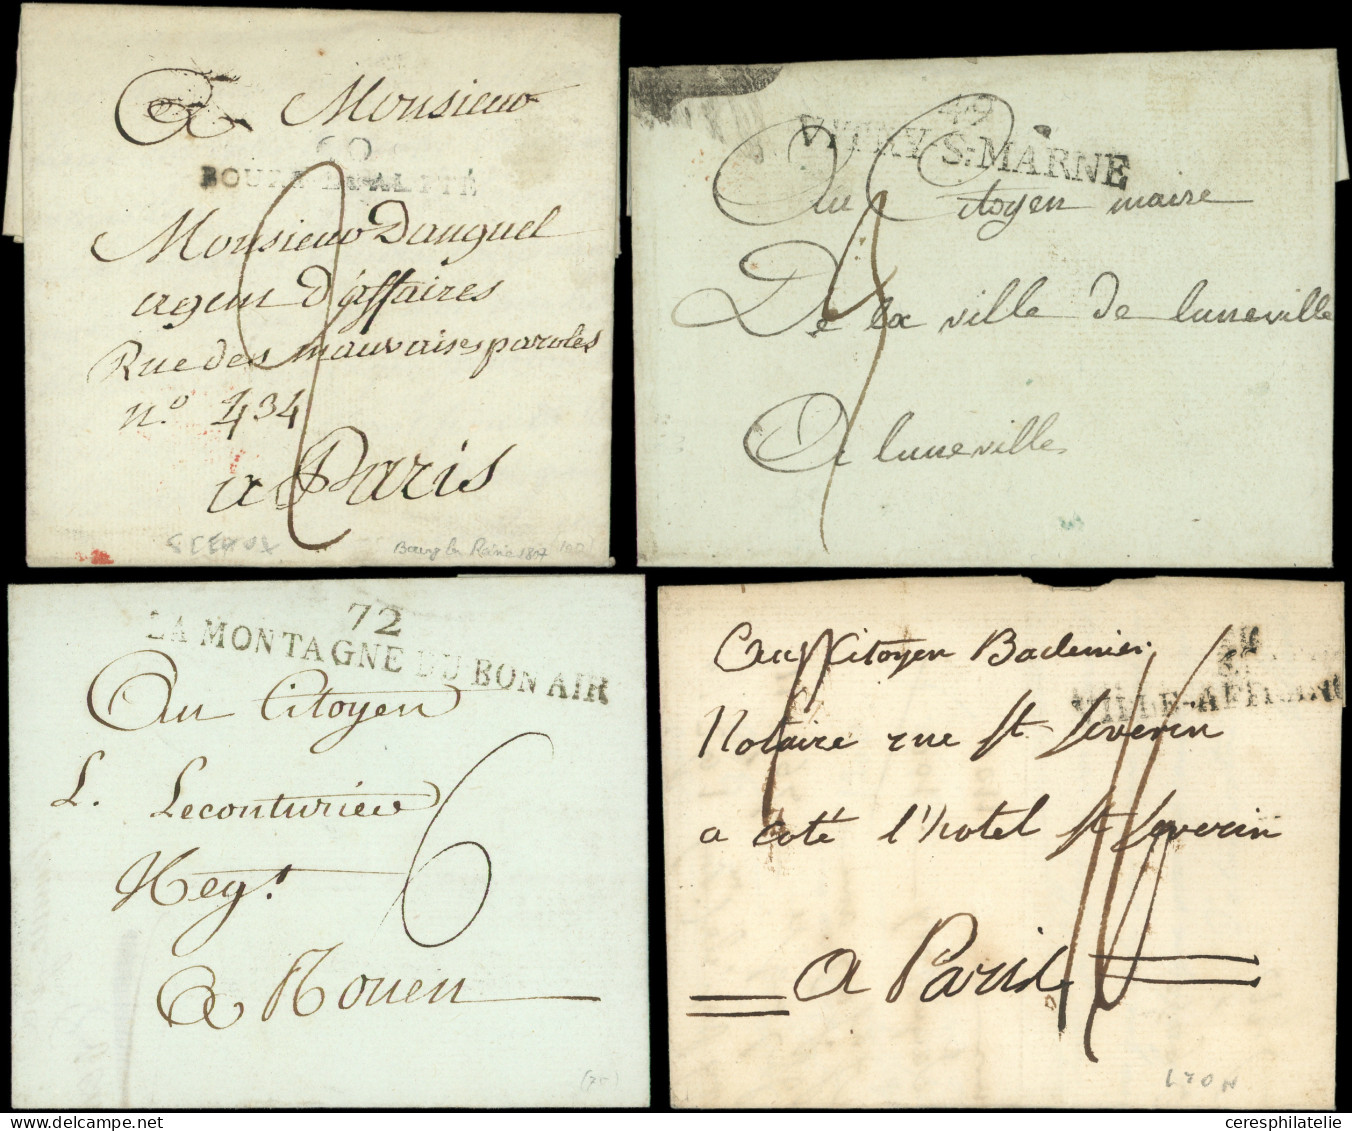 A Monsieur
60
BOURG-EGALITÉ
Monsieur Dauguel
agent d'affaires
Rue des mauvaises paroles
n.o 434
a Paris
SCEAUX
Bourg la Reine 1807
49
VITRY-S-MARNE
Au Citoyen maire
De la ville de luneville
A luneville
72
LA MONTAGNE DU BON AIR
Au Citoyen
L. Lecouturier
Neg.t
6
A Rouen
Au Citoyen
Notaire rue St Severin
a coté l'hotel St Severin
a Paris
LYON
ceresphilatelie